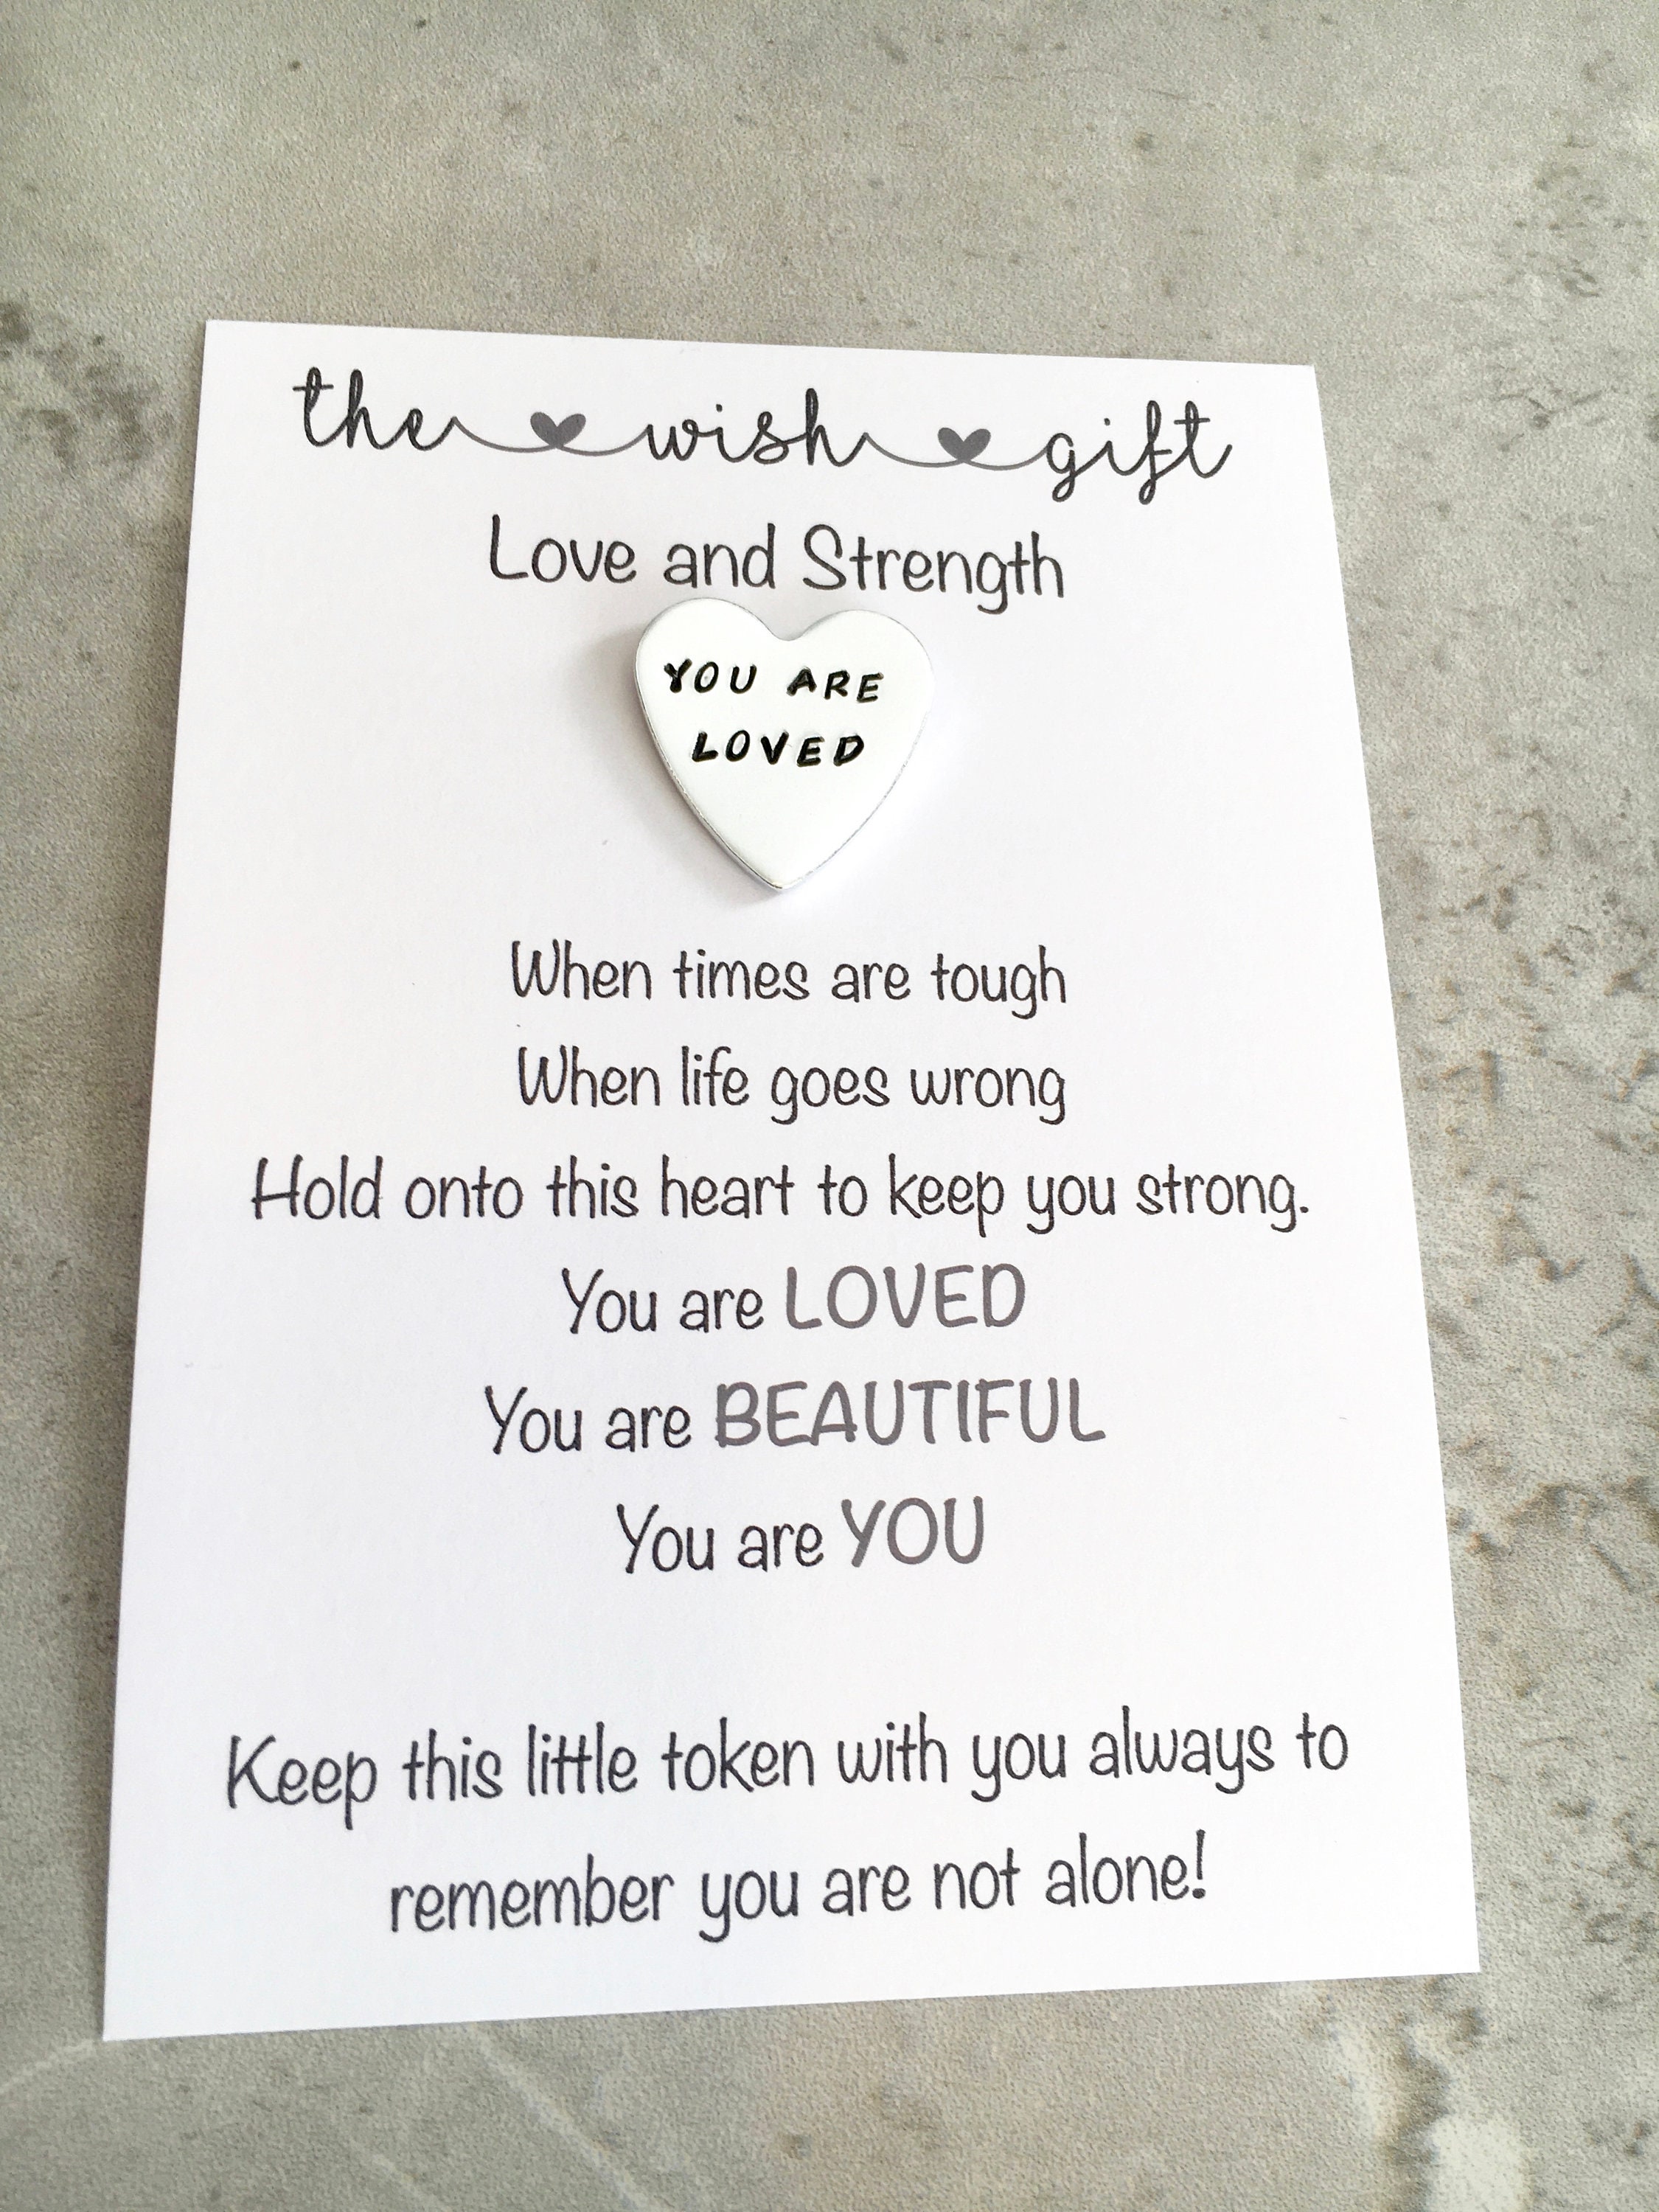 the wish gift
Love and Strength
YOU ARE
LOVED
When times are tough
When life goes wrong
Hold onto this heart to keep you strong.
You are LOVED
You are BEAUTIFUL
You are YOU
Keep this little token with you always to
remember you are not alone!